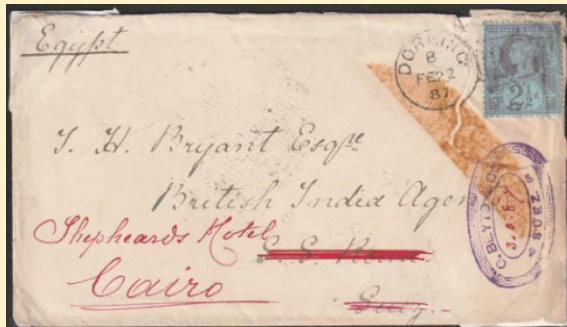 Egypt
DORKING
B
FE 22
87
2½
T. H. Bryant Esqre
British India Agen
Shepheards Hotel
S.S.
Cairo
Suez
SUEZ